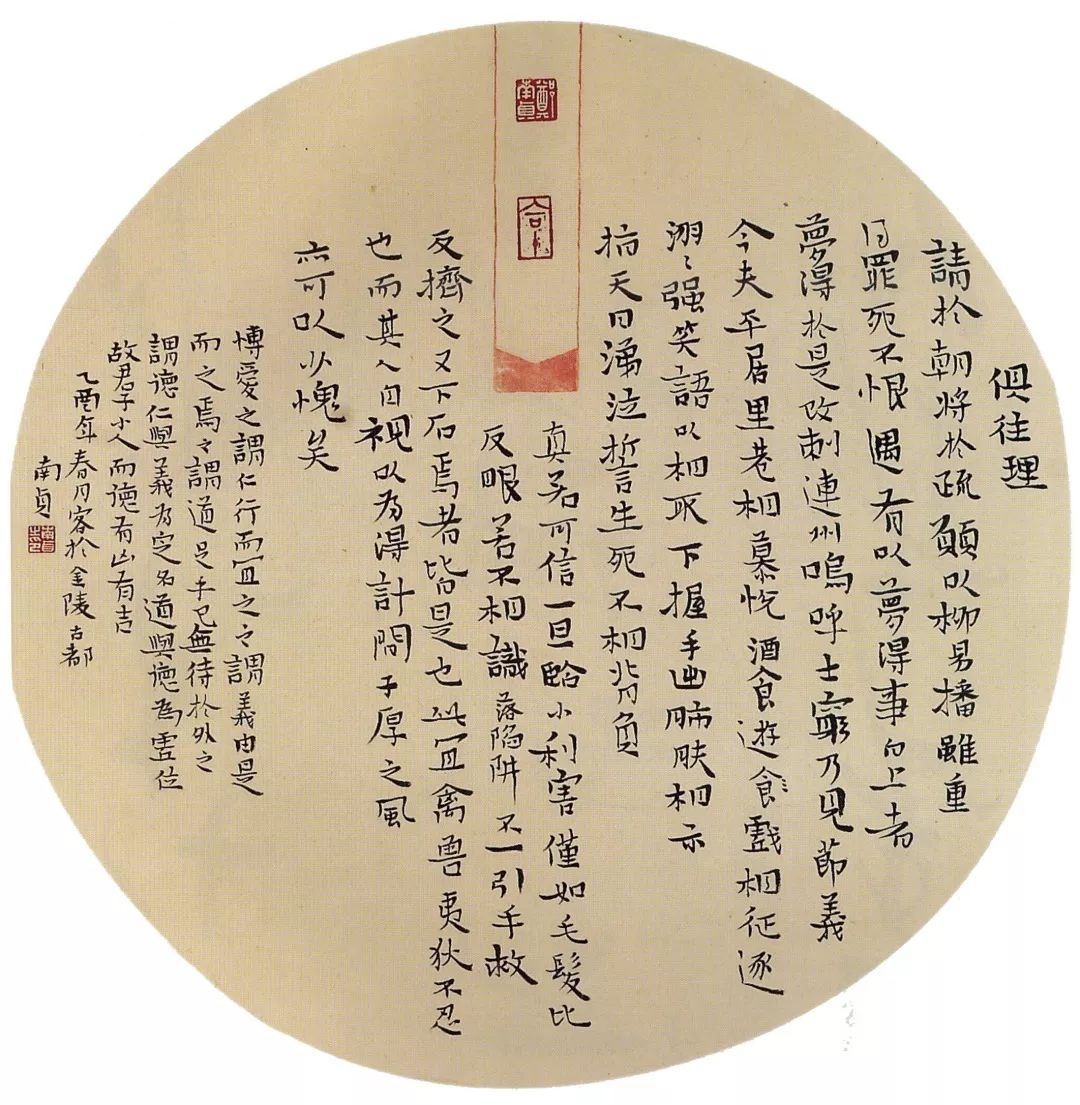 俱往理
請於朝將於疏願以柳易播雖重
罪死不恨遇有以夢得事白上者
夢得於是改刺連州嗚呼士窮乃見節義
今夫平居里巷相慕悅酒食遊食戲相征逐
詡〻強笑語以相取下握手出肺肝相示
指天日涕泣誓生死不相背負
真若可信一旦臨小利害僅如毛髮比
反眼若不相識落陷阱不一引手救
反擠之又下石焉者皆是也此宜禽獸夷狄不忍
也而其人自視以為得計聞子厚之風
亦可以少愧矣
博愛之謂仁行而宜之之謂義由是
而之焉之謂道足乎己無待於外之
謂德仁與義為定名道與德為虛位
故君子小人而德有凶有吉
乙酉年春月客於金陵古都
南貞
鄭南貞